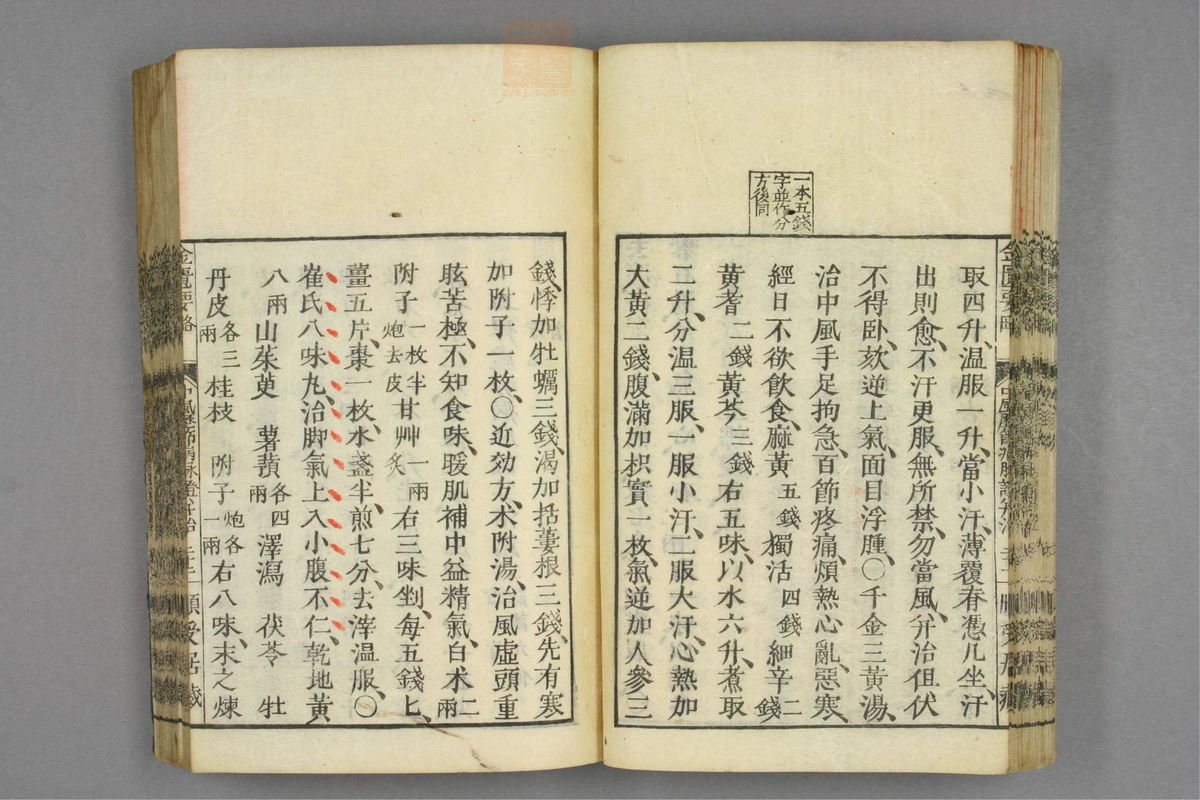 一本五錢
字並作分
方後同
取四升、温服一升、當小汗、薄覆脊、憑几坐、汗
出則愈、不汗更服、無所禁、勿當風、并治但伏
不得卧、欬逆上氣、面目浮腫、〇千金三黃湯、
治中風手足拘急、百節疼痛、煩熱心亂、惡寒、
經日不欲飲食、麻黃五錢獨活四錢細辛二錢
黃耆二錢黃芩三錢右五味、以水六升、煮取
二升、分温三服、一服小汗、二服大汗、心熱加
大黃二錢、腹滿加枳實一枚、氣逆加人參三
錢、悸加牡蠣三錢、渴加括蔞根三錢、先有寒
加附子一枚、〇近効方、术附湯、治風虛頭重
眩、苦極、不知食味、暖肌補中益精氣、白术二兩
附子一枚半炮去皮甘艸一兩炙右三味剉、每五錢匕、
薑五片、棗一枚、水盞半、煎七分、去滓温服、〇
崔氏八味丸、治脚氣上入小腹不仁、乾地黃
八兩山茱萸 薯蕷各四兩澤瀉 茯苓 牡
丹皮各三兩桂枝 附子炮各一兩右八味、末之煉
金匱要略